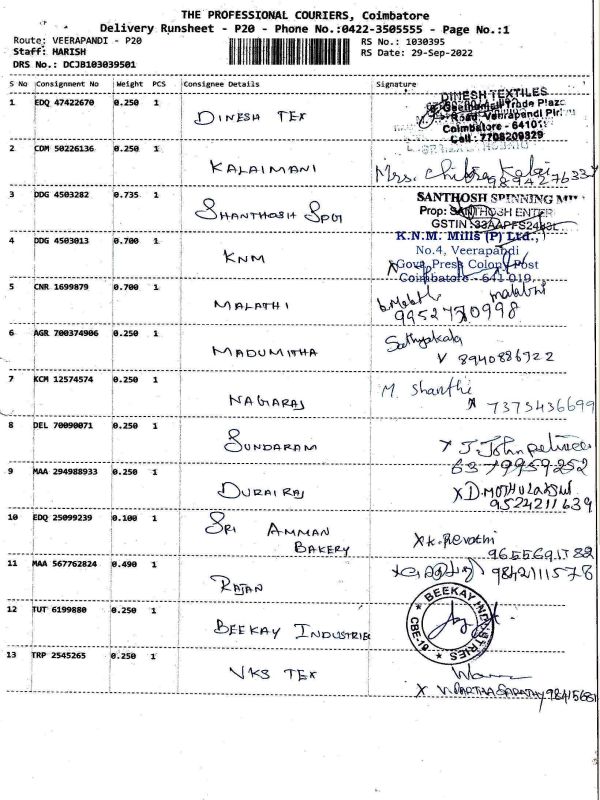 THE PROFESSIONAL COURIERS, Coimbatore
Delivery Runsheet - P20 - Phone No.:0422-3505555 - Page No.:1
Route: VEERAPANDI - P20
RS No.: 1030395
Staff: HARISH
RS Date: 29-Sep-2022
DRS No.: DCJB103039501
S No Consignment No Weight PCS Consignee Details Signature
1 EDQ 47422670 0.250 1 DINESH TEX
DINESH TEXTILES
Road, Veerapandi
Coimbatore - 64101
Cell : 7708209329
2 CDM 50226136 0.250 1 KALAIMANI
Mrs. Chitra Kalai
3 DDG 4503282 0.735 1 SHANTHOSH SPG
SANTHOSH SPINNING
Prop: SANTHOSH ENTER
GSTIN
4 DDG 4503013 0.700 1 KNM
K.N.M. Mills (P) Ltd.,
No.4, Veerapandi
Govt. Press Colony Post
Coimbatore - 641 019.
5 CNR 1699879 0.700 1 MALATHI
malathi
6 AGR 700374906 0.250 1 MADUMITHA
Sathyakala
8940886722
7 KCM 12574574 0.250 1 NAGARAJ
M. Shanthi
7373436699
8 DEL 70090071 0.250 1 SUNDARAM
6379959252
9 MAA 294988933 0.250 1 DURAIRAJ
9524211639
10 EDQ 25099239 0.100 1 SRI AMMAN
BAKERY
K. Revathi
11 MAA 567762824 0.490 1 RAJAN
9842111578
12 TUT 6199880 0.250 1 BEEKAY INDUSTRIES
BEEKAY INDUSTRIES
CBE-19
13 TRP 2545265 0.250 1 VKS TEX
V. PARTHASARATHY